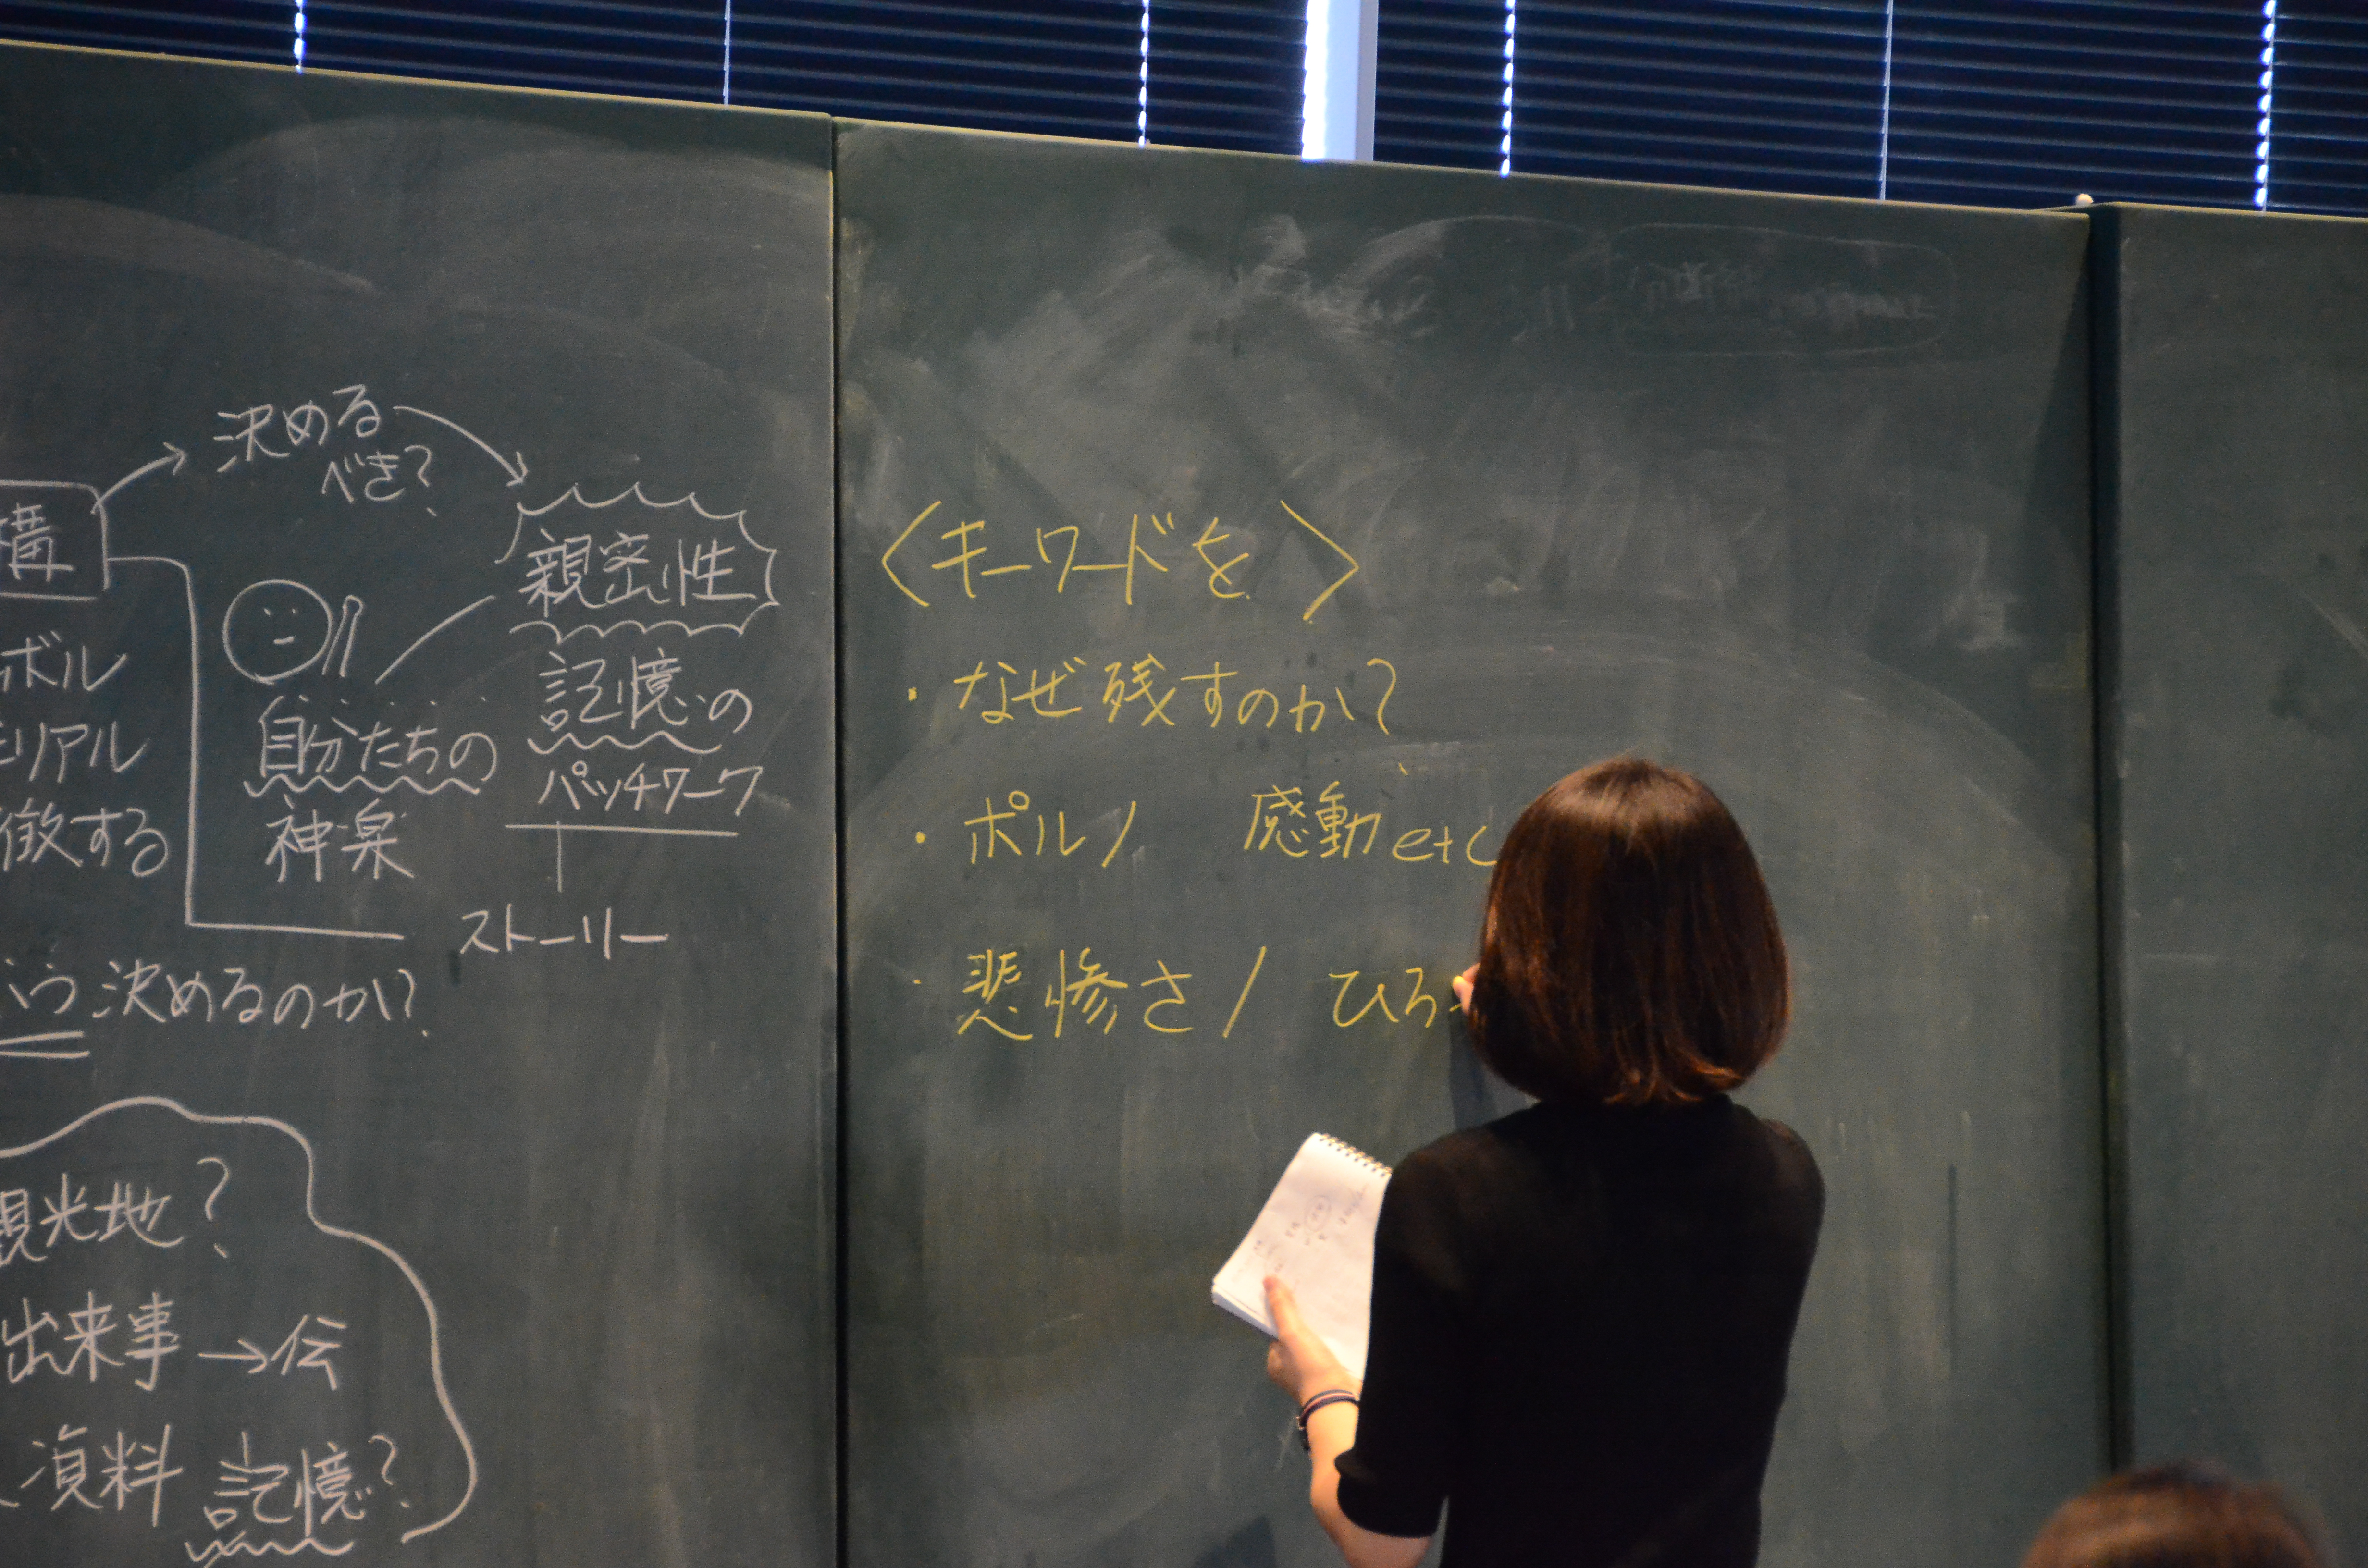 決める
べき?
構
親密性
ボル
記憶の
自分たちの
リアル
パッチワーク
神楽
徴する
ストーリー
決めるのか?
観光地?
出来事→伝
資料 記憶?
〈キーワードを〉
・なぜ残すのか?
・ポルノ 感動etc
・悲惨さ/ ひろ